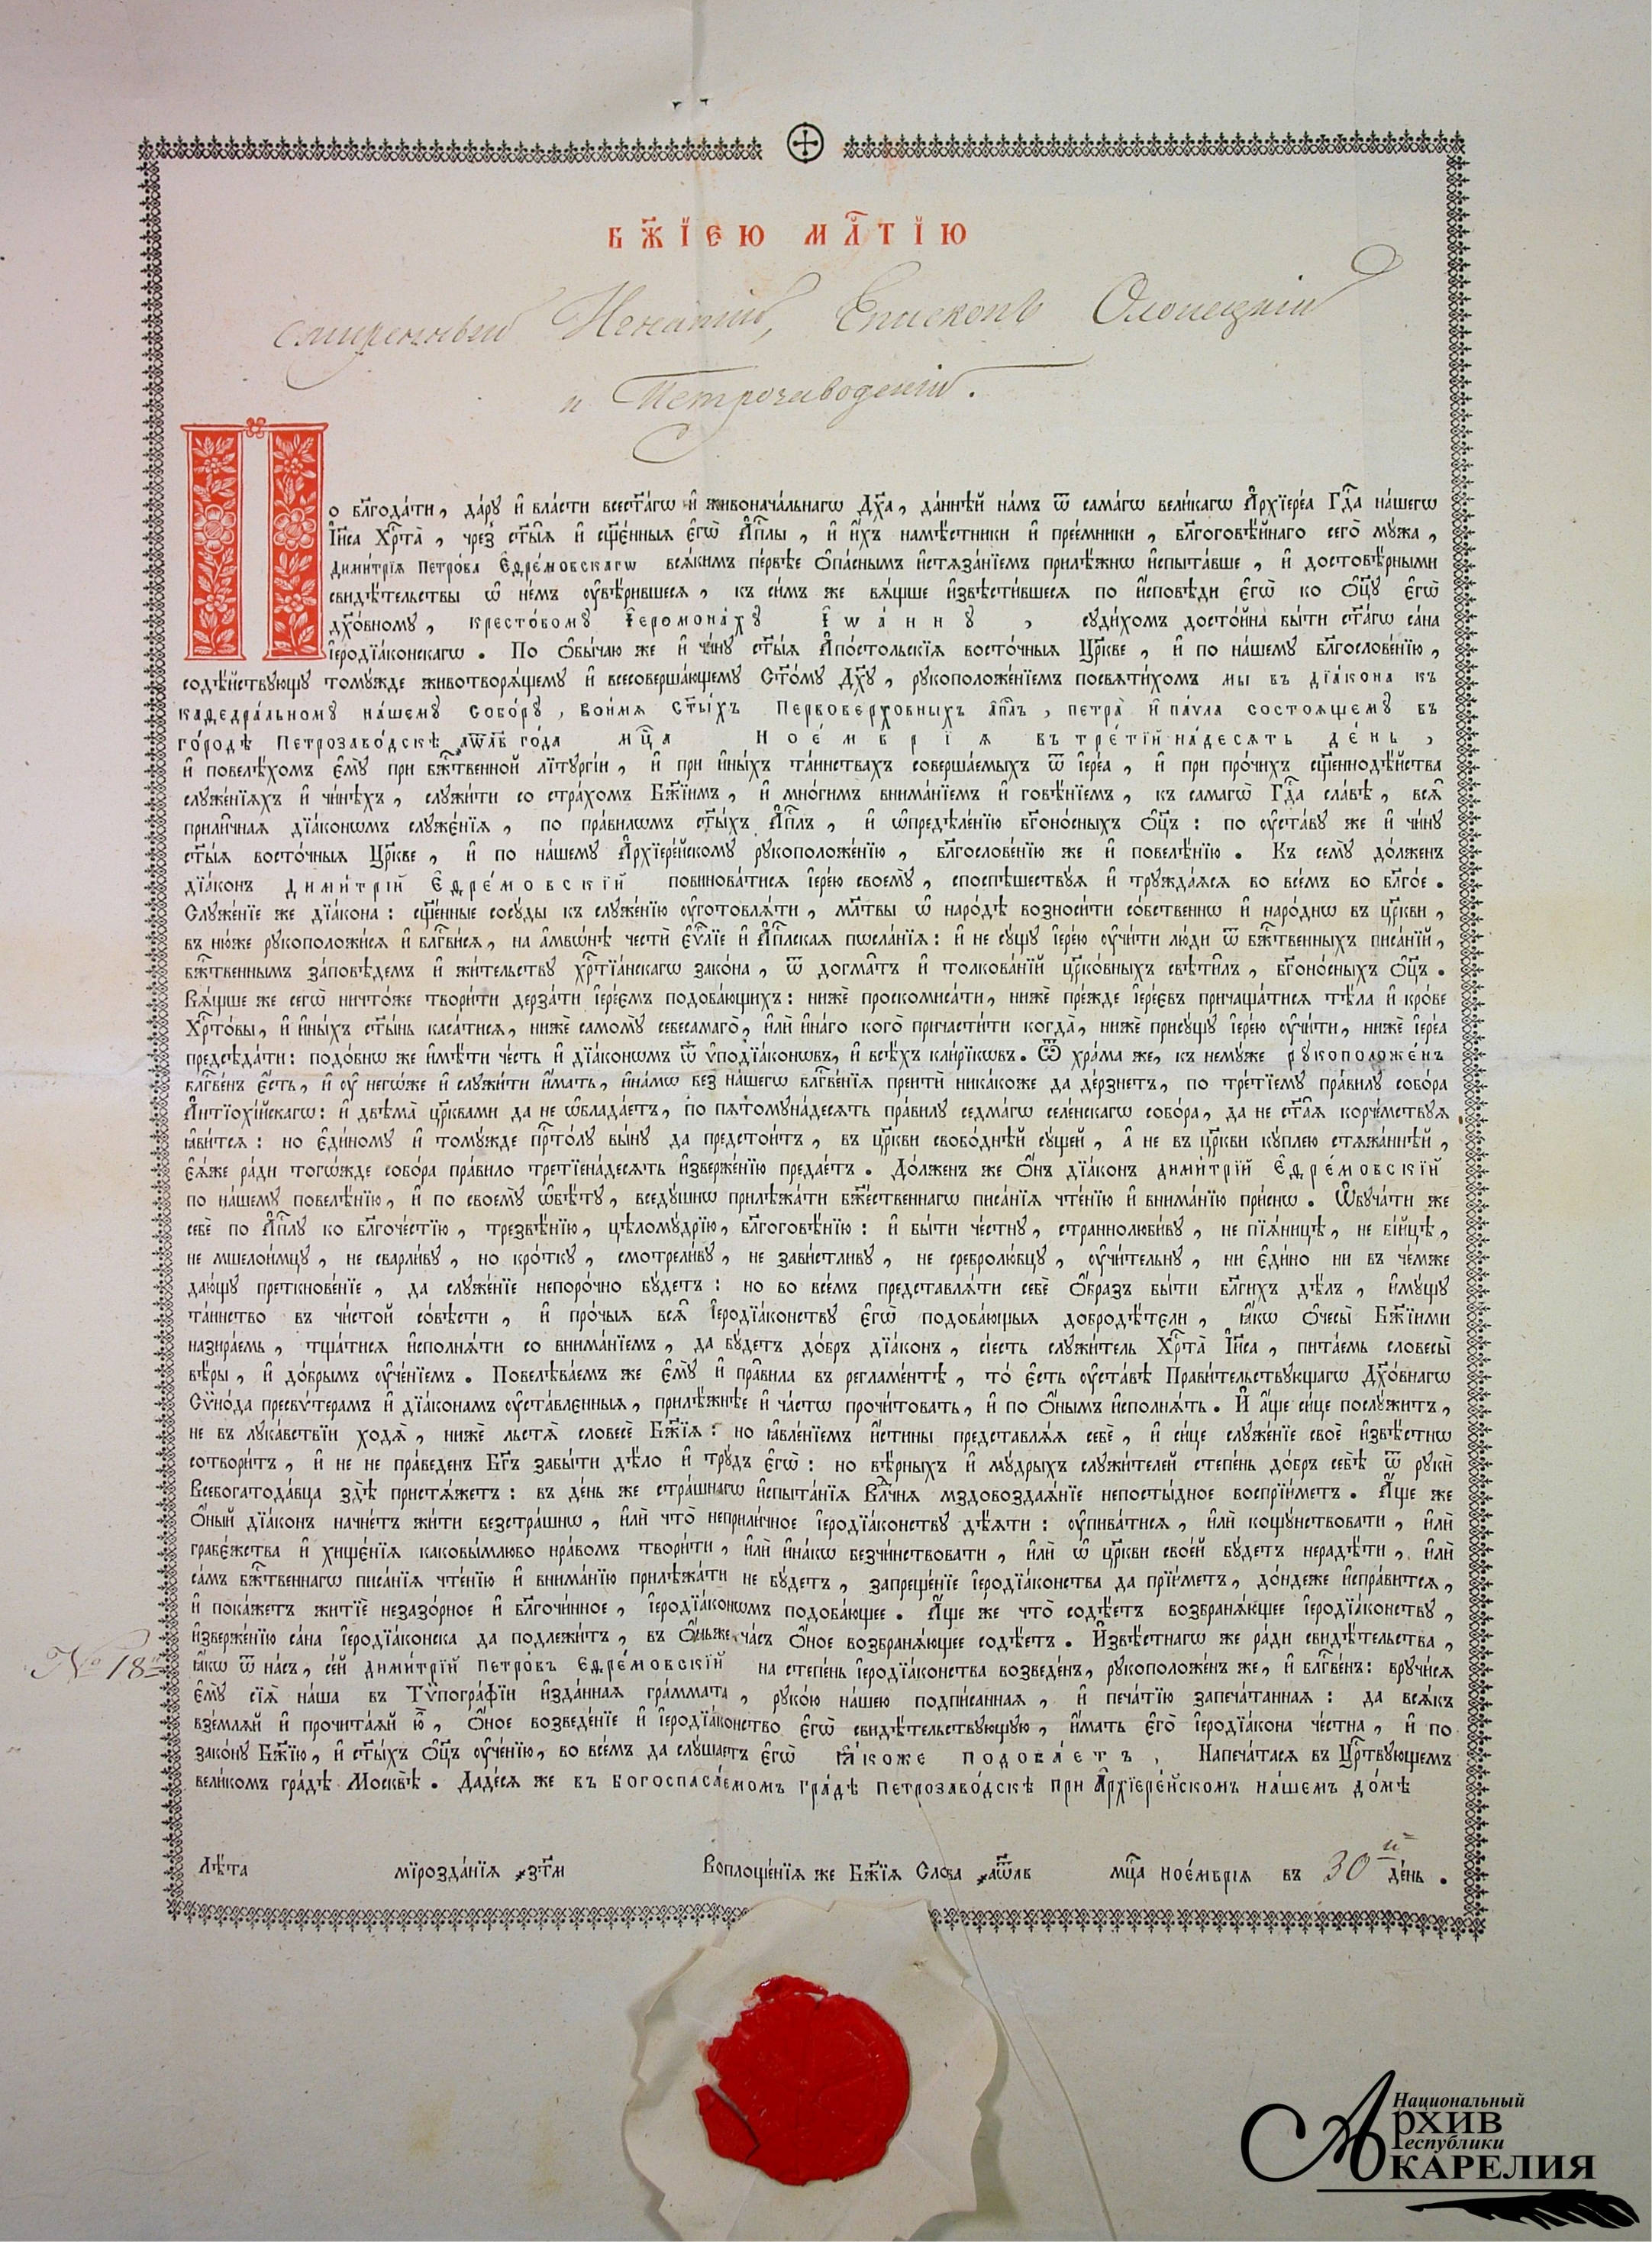 БЖ҃ІЕЮ МЛ҃ТІЮ
смиренный Игнатій, Епископъ Олонецкій
и Петрозаводскій.
По бл҃года́ти, да́ру и҆ вла́сти всест҃а́гѡ и҆ живонача́льнагѡ Дх҃а, да́ннѣй на́мъ ѿ самагѡ вели́кагѡ А҆рхїере́а Гдⷭ҇а на́шегѡ
І҆и҃са Хрⷭ҇та̀, чрез̾ ст҃ы́ѧ и҆ сщ҃е́нныѧ є҆гѡ̀ А҆пⷭ҇лы, и҆ и҆́хъ намѣ́стники и҆ прее́мники, бл҃гоговѣ́йнаго сего̀ мꙋ́жа,
Дими́трїѧ Петро́ва Є҆дре́мовскагѡ всѧ́кимъ пе́рвѣе ѻ҆па́снымъ и҆стѧза́нїемъ прилѣ́жнѡ и҆спыта́вше, и҆ достовѣ́рными
свидѣ́тельствы ѡ҆ не́мъ ᲂу҆вѣ́рившесѧ, къ си́мъ же вѧ́щше и҆звѣсти́вшесѧ по и҆сповѣ́ди є҆гѡ̀ ко ѻ҆тц҃ꙋ̀ є҆гѡ̀
дх҃о́вномꙋ, кресто́вомꙋ І҆еромона́хꙋ І҆ѡа́ннꙋ, сꙋди́хомъ досто́йна бы́ти ст҃а́гѡ са́на
і҆еродїа́конскагѡ. По ѻ҆бы́чаю же и҆ чи́нꙋ ст҃ы́ѧ А҆по́стольскїѧ восто́чныѧ Цр҃кве, и҆ по на́шемꙋ бл҃гослове́нїю,
содѣ́йствꙋющꙋ томꙋ́жде животворѧ́щемꙋ и҆ всесоверша́ющемꙋ Ст҃о́мꙋ Дх҃ꙋ, рꙋкоположе́нїемъ посвѧти́хомъ мы въ дїа́кона къ
каѳедра́льномꙋ на́шемꙋ Собо́рꙋ, во и́мѧ Ст҃ы́хъ Первоверхо́вныхъ а҆пⷭ҇лъ, петра̀ и҆ па́ѵла состоѧщемꙋ въ
го́родѣ Петрозаво́дскѣ ҂аѿлв го́да мцⷭ҇а Ное́мврїѧ въ тре́тїй на́десѧть де́нь,
и҆ повелѣ́хомъ є҆мꙋ̀ при бж҃твенной лїтꙋргі́и, и҆ при и҆ны́хъ та́инствахъ соверша́емыхъ ѿ і҆ере́а, и҆ при про́чихъ сщ҃еннодѣ́йства
слꙋже́нїѧхъ и҆ чинѣ́хъ, слꙋжи́ти со стра́хомъ Бж҃їимъ, и҆ мно́гимъ внима́нїемъ и҆ говѣ́нїемъ, къ самагѡ̀ Гдⷭ҇а сла́вѣ, всѧ̑
прили́чнаѧ дїа́конѡмъ слꙋже́нїѧ, по пра́вилѡмъ ст҃ы́хъ А҆пⷭ҇лъ, и҆ ѡ҆предѣле́нїю бг҃оно́сныхъ ѻ҆тц҃ъ: по ᲂу҆ста́вꙋ же и҆ чи́нꙋ
ст҃ы́ѧ восто́чныѧ Цр҃кве, и҆ по на́шемꙋ А҆рхїере́йскомꙋ рꙋкоположе́нїю, бл҃гослове́нїю же и҆ повелѣ́нїю. Къ семꙋ̀ до́лженъ
дїа́конъ Дими́трїй Є҆дре́мовскїй повинова́тисѧ і҆ере́ю своемꙋ̀, споспѣ́шествꙋѧ и҆ трꙋжда́ѧсѧ во все́мъ во бл҃го́е.
Слꙋже́нїе же дїа́кона: сщ҃е́нные сосꙋ́ды къ слꙋже́нїю ᲂу҆готовлѧ́ти, мл҃твы ѡ҆ наро́дѣ возноси́ти со́бственнѡ и҆ наро́днѡ въ цр҃кви,
въ ню́же рꙋкоположи́сѧ и҆ блгⷭ҇ви́сѧ, на а҆мвѡ́нѣ чести̑ є҆ѵⷢ҇лїе и҆ А҆пⷭ҇лскаѧ пѡсла́нїѧ: и҆ не сꙋ́щꙋ і҆ере́ю ᲂу҆чи́ти лю́ди ѿ бж҃твенныхъ писа́нїй,
бж҃твеннымъ за́повѣдемъ и҆ жи́тельствꙋ хрⷭ҇тїа́нскагѡ зако́на, ѿ догма̑тъ и҆ толкова́нїй цр҃ко́вныхъ свѣти̑лъ, бг҃оно́сныхъ ѻ҆тц҃ъ.
Вѧ́щше же сегѡ̀ ничто́же твори́ти дерза́ти і҆ере́ємъ подоба́ющихъ: нижѐ проскомиса́ти, нижѐ пре́жде і҆ере́євъ причаща́тисѧ тѣ́ла и҆ кро́ве
Хрⷭ҇то́вы, и҆ и҆ны́хъ ст҃ы́нь каса́тисѧ, нижѐ самомꙋ̀ себесамаго̀, и҆лѝ и҆на́го кого̀ причасти́ти когда̀, нижѐ прису́щꙋ і҆ере́ю ᲂу҆чи́ти, нижѐ і҆ере́а
предсѣда́ти: подо́бнѡ же и҆мѣ́ти че́сть и҆ дїа́конѡмъ ѿ ѵ҆подїа́конѡвъ, и҆ всѣ́хъ кли́рїкѡвъ. Ѿ хра́ма же, къ немꙋ́же рꙋкоположе́нъ
блгⷭ҇ве́нъ є҆́сть, и҆ ᲂу҆ негѡ́же и҆ слꙋжи́ти и҆́мать, и҆на́мѡ без̾ на́шегѡ блгⷭ҇ве́нїѧ прейтѝ ника́коже да де́рзнетъ, по тре́тїемꙋ пра́вилꙋ собо́ра
А҆нтїохі́йскагѡ: и҆ двѣма̀ цр҃квами да не ѡ҆блада́етъ, по пѧ́томꙋна́десѧть пра́вилꙋ седма́гѡ селе́нскагѡ собо́ра, да не ст҃а̑ѧ корче́мствꙋѧ
ꙗ҆ви́тсѧ: но є҆ди́номꙋ и҆ томꙋ́жде прⷭ҇то́лꙋ вы́нꙋ да предстои́тъ, въ цр҃кви свобо́днѣй сꙋ́щей, а҆ не въ цр҃кви кꙋ́плею стѧжа́ннѣй,
є҆ѧ́же ра́ди тогѡ́жде собо́ра пра́вило третїена́десѧть и҆зверже́нїю предае́тъ. До́лженъ же ѻ҆́нъ дїа́конъ димитрїй Є҆дре́мовскїй
по на́шемꙋ повелѣ́нїю, и҆ по своемꙋ̀ ѡ҆бѣ́тꙋ, вседꙋ́шнѡ прилѣжа́ти бж҃е́ственнагѡ писа́нїѧ чте́нїю и҆ внима́нїю при́снѡ. Ѡ҆бꙋча́ти же
себѐ по А҆пⷭ҇лꙋ ко бл҃гоче́стїю, трезвѣ́нїю, цѣломꙋ́дрїю, бл҃гоговѣ́нїю: и҆ бы́ти че́стнꙋ, страннолюби́вꙋ, не пїѧ́ницѣ, не бі́йцѣ,
не мшелои́мцꙋ, не сварли́вꙋ, но кро́ткꙋ, смотрели́вꙋ, не зави́стливꙋ, не сребролю́бцꙋ, ᲂу҆чи́тельнꙋ, ни є҆ди́но ни въ че́мже
даю́щꙋ преткнове́нїе, да слꙋже́нїе непоро́чно бꙋ́детъ: но во все́мъ представлѧ́ти себѐ ѻ҆́бразъ бы́ти бл҃ги́хъ дѣ́лъ, и҆мꙋ́щꙋ
та́инство въ чи́стой со́вѣсти, и҆ про́чыѧ всѧ̑ і҆еродїа́конствꙋ є҆гѡ̀ подоба́ющыѧ добродѣ́тєли, ꙗ҆́кѡ ѻ҆чесы̀ Бж҃їими
назира́емь, тща́тисѧ и҆сполнѧ́ти со внима́нїемъ, да бꙋ́детъ до́бръ дїа́конъ, сіе́сть слꙋжи́тель Хрⷭ҇та̀ І҆и҃са, пита́емь словесы̀
вѣ́ры, и҆ до́брымъ ᲂу҆че́нїемъ. Повелѣва́емъ же є҆мꙋ̀ и҆ пра̑вила въ регла́ментѣ, то̀ є҆́сть ᲂу҆ста́вѣ Прави́тельствꙋющагѡ Дх҃о́внагѡ
Сѷно́да пресвѵ́терамъ и҆ дїа́конамъ ᲂу҆ста́влєнныѧ, прилѣ́жнѣе и҆ ча́стѡ прочи́товать, и҆ по ѻ҆́нымъ и҆сполнѧ́ть. И҆ а҆́ще си́це послꙋ́житъ,
не въ лꙋка́вствїи ходѧ̀, нижѐ льстѧ̀ словесѐ Бж҃їѧ: но ꙗ҆вле́нїемъ и҆́стины представлѧ́ѧ себѐ, и҆ си́це слꙋже́нїе своѐ и҆звѣ́стнѡ
сотвори́тъ, и҆ не не пра́веденъ Бг҃ъ забы́ти дѣ́ло и҆ трꙋ́дъ є҆гѡ̀: но вѣ́рныхъ и҆ мꙋ́дрыхъ слꙋжи́телей степе́нь до́бръ себѣ̀ ѿ рꙋкѝ
Всебогатода́вца здѣ̀ пристѧ́жетъ: въ де́нь же стра́шнагѡ и҆спыта́нїѧ Влⷣчнѧ мздовоздаѧ́нїе непосты́дное воспрїи́метъ. А҆́ще же
ѻ҆́ный дїа́конъ начне́тъ жи́ти безстра́шнѡ, и҆лѝ что̀ неприли́чное і҆еродїа́конствꙋ дѣ́ѧти: ᲂу҆пива́тисѧ, и҆лѝ кощꙋ́нствовати, и҆лѝ
грабе́жства и҆ хище́нїѧ каковы́млюбо нра́вомъ твори́ти, и҆лѝ и҆на́кѡ безчи́нствовати, и҆лѝ ѡ҆ цр҃кви свое́й бꙋ́детъ нерадѣ́ти, и҆лѝ
са́мъ бж҃твеннагѡ писа́нїѧ чте́нїю и҆ внима́нїю прилѣжа́ти не бꙋ́детъ, запреще́нїе і҆еродїа́конства да прїе́метъ, до́ндеже и҆спра́витсѧ,
и҆ пока́жетъ житїѐ незазо́рное и҆ бл҃гочи́нное, і҆еродїа́конѡмъ подоба́ющее. А҆́ще же что̀ содѣ́етъ возбранѧ́ющее і҆еродїа́конствꙋ,
и҆зверже́нїю са́на і҆еродїа́конска да подлежи́тъ, въ ѻ҆́ньже ча́съ ѻ҆́ное возбранѧ́ющее содѣ́етъ. И҆звѣ́стнагѡ же ра́ди свидѣ́тельства,
№ 18й
ꙗ҆́кѡ ѿ на́съ, се́й дими́трїй петро́въ Є҆дре́мовскїй на степе́нь і҆еродїа́конства возведе́нъ, рꙋкоположе́нъ же, и҆ блгⷭ҇ве́нъ: врꙋчи́сѧ
є҆мꙋ̀ сїѧ̀ на́ша въ Тѷпогра́фїи и҆зда́ннаѧ гра́ммата, рꙋко́ю на́шею подпи́саннаѧ, и҆ печа́тїю запеча́танная: да всѧ́къ
взе́млѧй и҆ прочита́ѧй ю҆̀, ѻ҆́ное возведе́нїе и҆ і҆еродїа́конство є҆гѡ̀ свидѣ́тельствꙋющꙋю, и҆́мать є҆го̀ і҆еродїа́кона че́стна, и҆ по
зако́нꙋ Бж҃їю, и҆ ст҃ы́хъ ѻ҆тц҃ъ ᲂу҆че́нїю, во все́мъ да слꙋ́шаетъ є҆гѡ̀ ꙗ҆́коже подобаетъ, Напеча́тасѧ въ Црⷭ҇твꙋющемъ
вели́комъ гра́дѣ Москвѣ̀. Даде́сѧ же въ богоспаса́емомъ гра́дѣ петрозаво́дскѣ при А҆рхїере́йскомъ на́шемъ до́мѣ
Лѣ́та мїрозда́нїѧ ҂зтм Воплоще́нїѧ же Бж҃їѧ Слова ҂аѿлв мцⷭ҇а ное́мврїѧ въ 30й де́нь.
Национальный
Архив
Республики
КАРЕЛИЯ